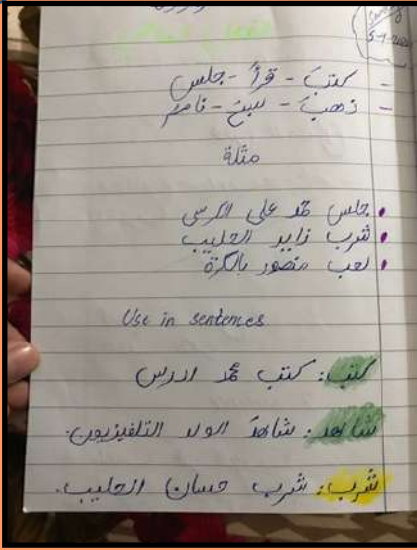 Sunday
5-9-202
- كتبَ - قرأَ - جلس
- ذهبَ - سبحَ - نام
مثلة
جلس محمد على الكرسي
شرب زايد الحليب
لعب منصور بالكرة
Use in sentences
كتب: كتب محمد الدرس
شاهد: شاهدَ الولد التلفيزيون.
شرب: شرب حسان الحليب.